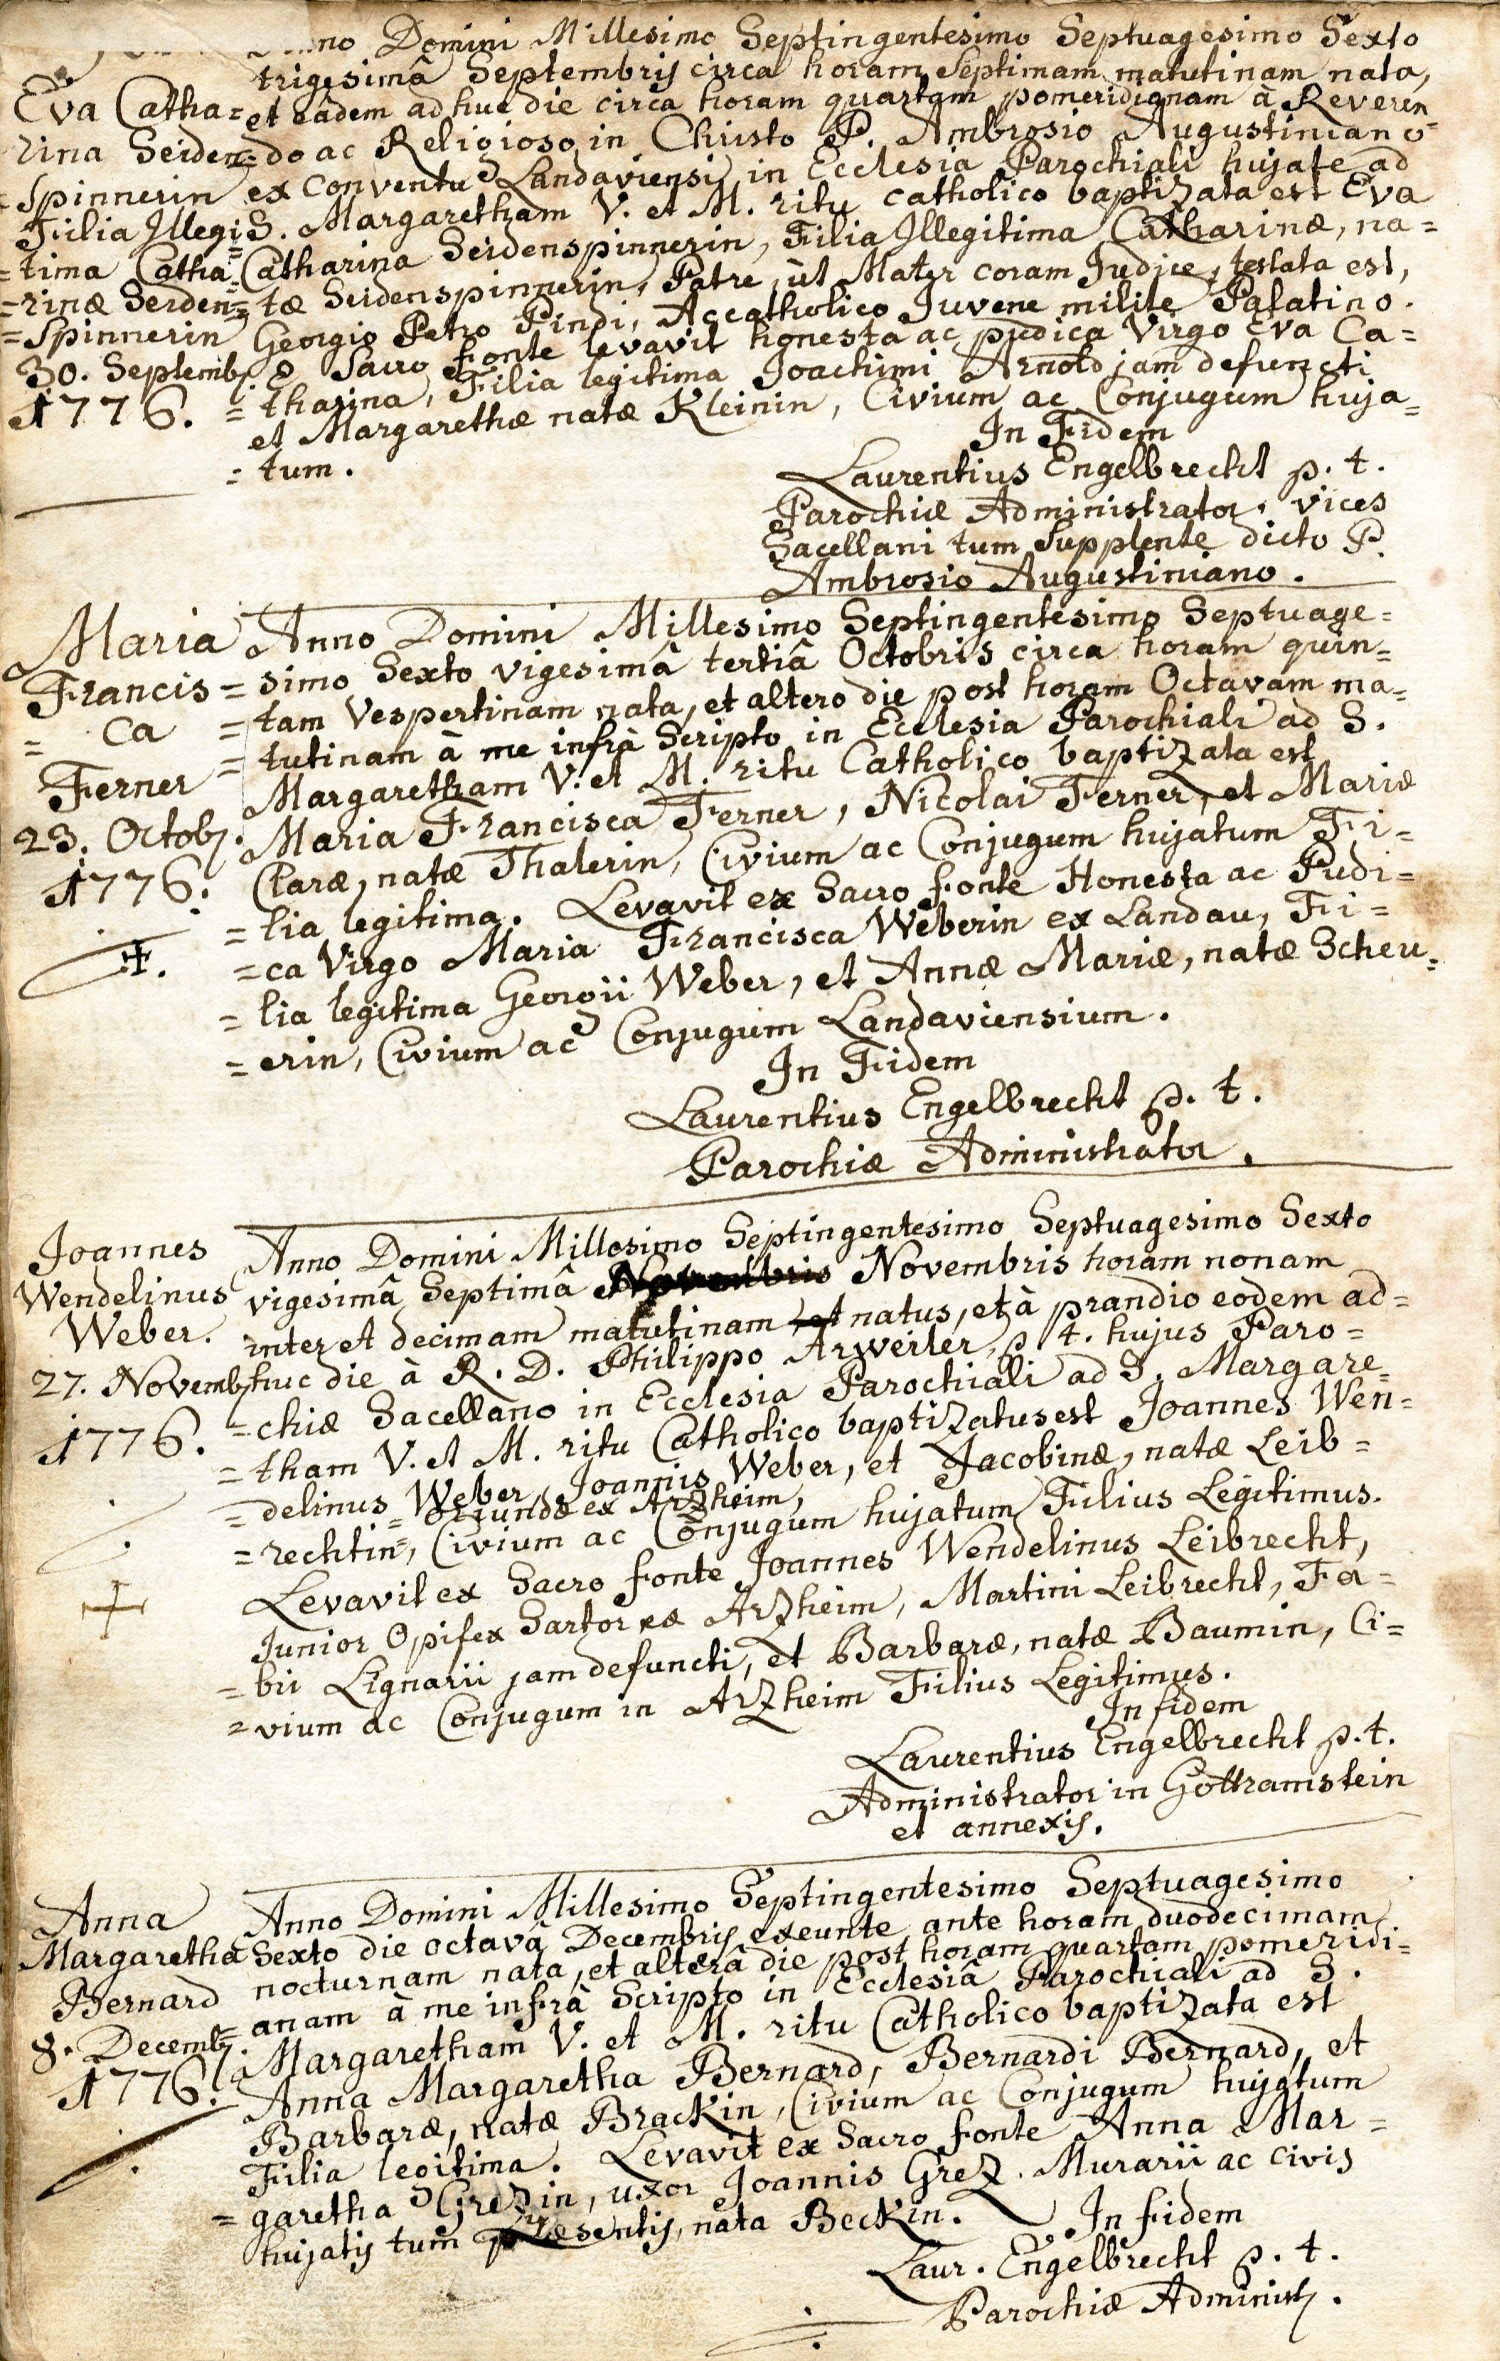 Anno Domini Millesimo Septingentesimo Septuagesimo Sexto
trigesimâ Septembris circa horam Septimam matutinam nata,
Eva Catha=
et eâdem adhuc die circa horam quartam pomeridianam à Reveren
rina Seiden=
do ac Religioso in Christo P. Ambrosio Augustiniano
=Spinnerin
ex Conventu Landaviensi in Ecclesiâ Parochiali hujate ad
Filia Illegi=
S. Margaretham V. et M. ritu catholico baptizata est Eva
=tima Catha=
Catharina Seidenspinnerin, Filia Illegitima Catharinæ, na=
=rinæ Seiden=
=tæ Seidenspinnerin, Patre, ùt Mater coram Judice, testata est,
=Spinnerin
Georgio Petro Pindi, Accatholico Juvene milite Palatino.
30. Septembr
è Sacro Fonte levavit honesta ac pudica Virgo Eva Ca=
1776.
=tharina, Filia legitima Joachimi Arnold jam defuncti
et Margarethæ natæ Kleinin, Civium ac Conjugum huja=
=tum.
In Fidem
Laurentius Engelbrecht p. t.
Parochiæ Administrator, vices
Sacellani tum Supplente dicto P.
Ambrosio Augustiniano.
Maria
Anno Domini Millesimo Septingentesimo Septuage=
Francis=
=simo Sexto vigesimâ tertiâ Octobris circa horam quin=
= ca
=tam Vespertinam nata, et altero die post horam Octavam ma=
Ferner
=tutinam à me infrà Scripto in Ecclesia Parochiali ad S.
23. Octobr.
Margaretham V. et M. ritu Catholico baptizata est
1776.
Maria Francisca Ferner, Nicolai Ferner, et Mariæ
Claræ, natæ Thalerin, Civium ac Conjugum hujatum Fi=
=lia legitima. Levavit ex Sacro fonte Honesta ac Pudi=
=ca Virgo Maria Francisca Weberin ex Landau, Fi=
=lia legitima Georgii Weber, et Annæ Mariæ, natæ Scheu=
=erin, Civium ac Conjugum Landaviensium.
In Fidem
Laurentius Engelbrecht p. t.
Parochiæ Administrator.
Joannes
Anno Domini Millesimo Septingentesimo Septuagesimo Sexto
Wendelinus
vigesimâ Septimâ Novembris Novembris horam nonam
Weber.
inter et decimam matutinam et natus, et à prandio eodem ad=
27. Novembr
huc die à R. D. Philippo Arweiler, p. t. hujus Paro=
1776.
=chiæ Sacellano in Ecclesia Parochiali ad S. Margare=
=tham V. et M. ritu Catholico baptizatus est Joannes Wen=
=delinus Weber, Joannis Weber, et Jacobinæ, natæ Leib=
= oriundæ ex Arzheim,
=rechtin=, Civium ac Conjugum hujatum Filius Legitimus.
Levavit ex Sacro fonte Joannes Wendelinus Leibrecht,
Junior Opifex Sartor ex Arzheim, Martini Leibrecht, Fa=
=bri Lignarii jam defuncti, et Barbaræ, natæ Baumin, Ci=
=vium ac Conjugum in Arzheim Filius Legitimus.
In fidem
Laurentius Engelbrecht p. t.
Administrator in Gottramstein
et annexis.
Anna
Anno Domini Millesimo Septingentesimo Septuagesimo
Margaretha
Sexto die octavâ Decembris exeunte ante horam duodecimam
Bernard
nocturnam nata, et alterâ die post horam quartam pomeridi=
8. Decembr.
=anam à me infrà Scripto in Ecclesiâ Parochiali ad S.
1776.
Margaretham V. et M. ritu Catholico baptizata est
Anna Margaretha Bernard, Bernardi Bernard, et
Barbaræ, natæ Brackin, Civium ac Conjugum hujatum
Filia legitima. Levavit ex Sacro fonte Anna Mar=
=garetha Grezin, uxor Joannis Grez Murarii ac civis
hujatis tum præsentis, nata Beckin.
In fidem
Laur. Engelbrecht p. t.
Parochiæ Administr.